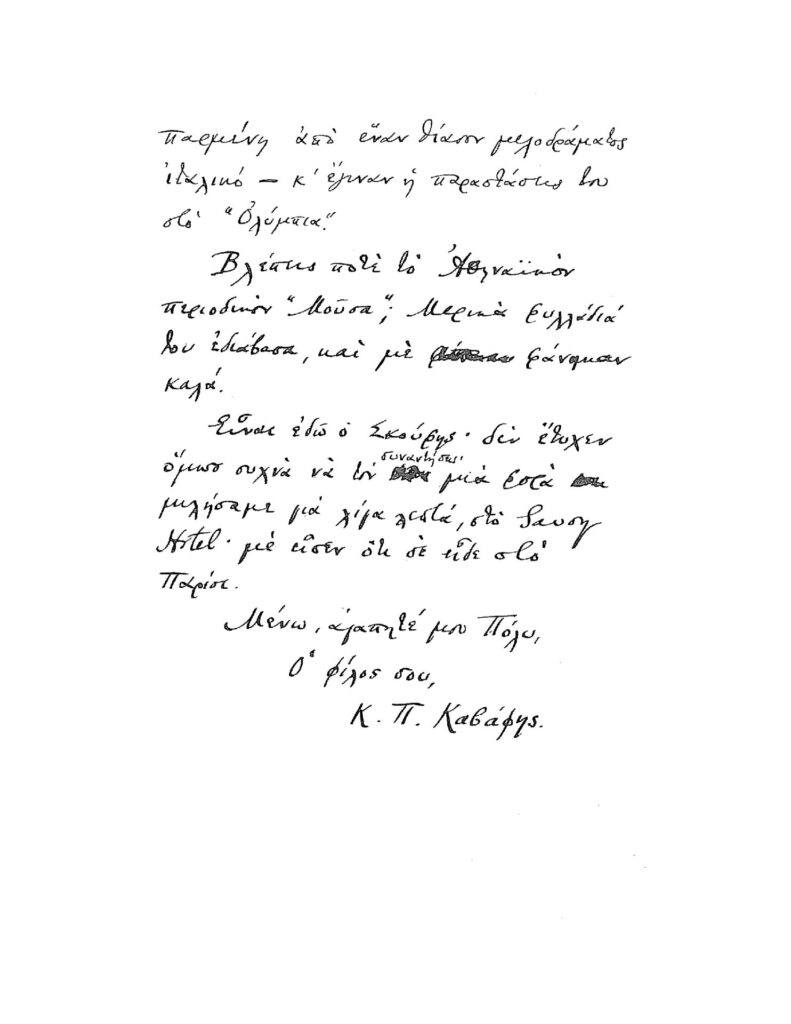 παρμένη ἀπὸ ἕναν θίασον μελοδράματος
ἰταλικό — κ' ἔγιναν ἡ παραστάσεις του
στὸ "Ὀλύμπια".
Βλέπεις ποτὲ τὸ Ἀθηναϊκὸν
περιοδικὸν "Μοῦσα"; Μερικὰ φυλλάδιά
του ἐδιάβασα, καὶ μὲ φάνηκαν
καλά.
Εἶναι ἐδῶ ὁ Σκούφης· δὲν ἔτυχεν
ὅμως συχνὰ νὰ τὸν συναντήσω· μιὰ φορὰ
μιλήσαμε μιὰ λίγα λεπτά, στὸ Savoy
Hotel· μὲ εἶπεν ὅτι σὲ εἶδε στὸ
Παρίσι.
Μένω, ἀγαπητέ μου Πόλυ,
Ὁ φίλος σου,
Κ. Π. Καβάφης.